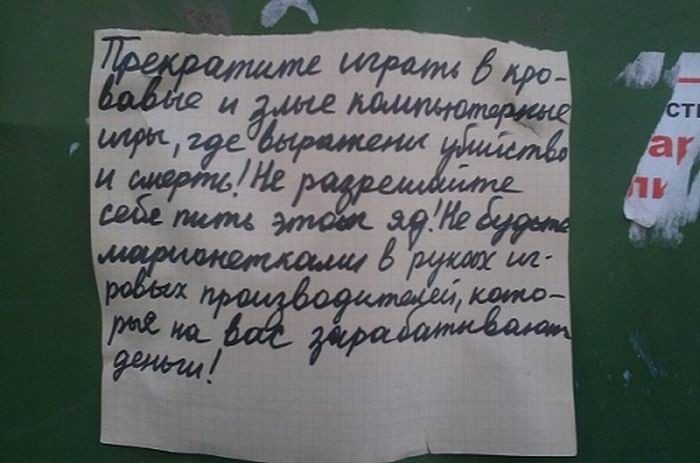 Прекратите играть в кро-
вавые и злые компьютерные
игры, где выражены убийство
и смерть! Не разрешайте
себе пить этот яд! Не будьте
марионетками в руках иг-
ровых производителей, кото-
рые на вас зарабатывают
деньги!
СТ
ар
ли